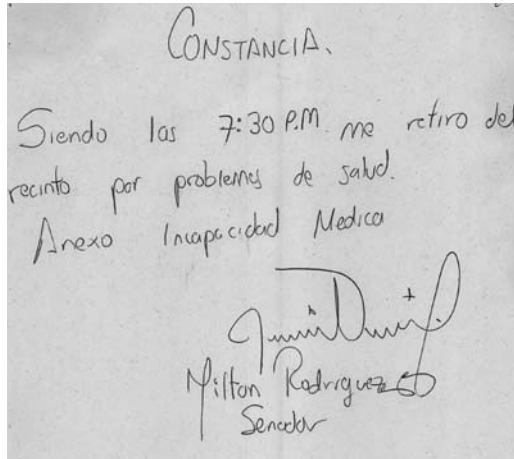 CONSTANCIA.
Siendo las 7:30 P.M. me retiro del
recinto por problemas de salud.
Anexo Incapacidad Medica
Milton Rodriguez
Senador